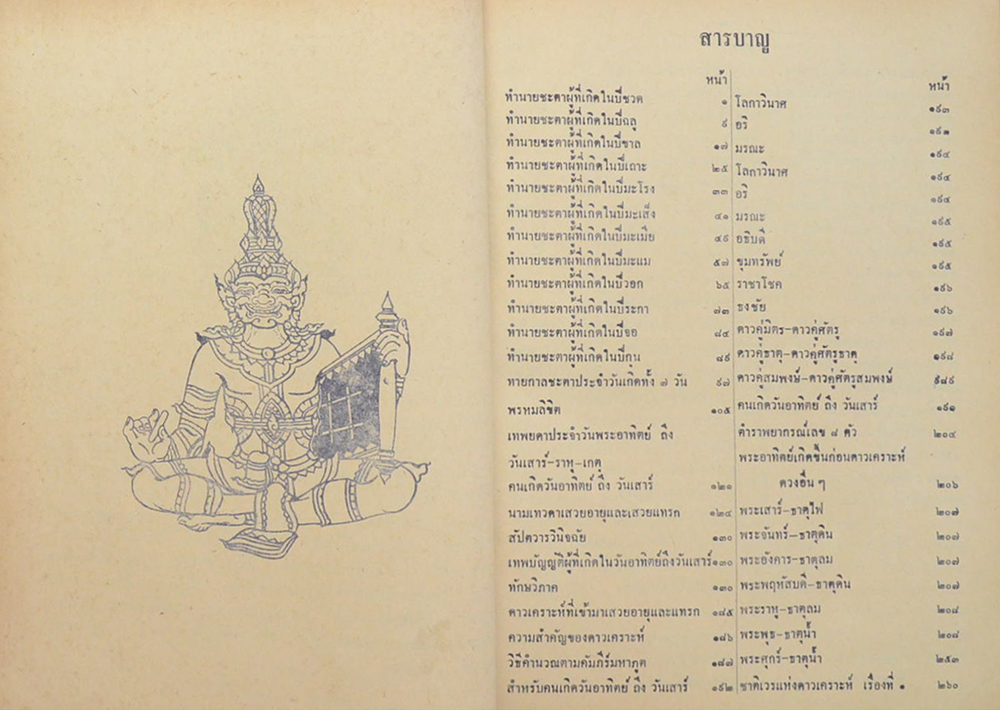 สารบาญ
หน้า
ทำนายชะตาผู้ที่เกิดในปีชวด ๑
ทำนายชะตาผู้ที่เกิดในปีฉลู ๙
ทำนายชะตาผู้ที่เกิดในปีขาล ๑๗
ทำนายชะตาผู้ที่เกิดในปีเถาะ ๒๕
ทำนายชะตาผู้ที่เกิดในปีมะโรง ๓๓
ทำนายชะตาผู้ที่เกิดในปีมะเส็ง ๔๑
ทำนายชะตาผู้ที่เกิดในปีมะเมีย ๔๙
ทำนายชะตาผู้ที่เกิดในปีมะแม ๕๗
ทำนายชะตาผู้ที่เกิดในปีวอก ๖๕
ทำนายชะตาผู้ที่เกิดในปีระกา ๗๓
ทำนายชะตาผู้ที่เกิดในปีจอ ๘๔
ทำนายชะตาผู้ที่เกิดในปีกุน ๘๙
ทายกาลชะตาประจำวันเกิดทั้ง ๗ วัน ๙๗
พรหมลิขิต ๑๐๕
เทพยดาประจำวันพระอาทิตย์ ถึง
วันเสาร์-ราหู-เกตุ
คนเกิดวันอาทิตย์ ถึง วันเสาร์ ๑๒๑
นามเทวดาเสวยอายุและเสวยแทรก ๑๒๔
สัปตวารวินิจฉัย ๑๓๐
เทพบัญญัติผู้ที่เกิดในวันอาทิตย์ถึงวันเสาร์ ๑๓๐
ทักษวิภาค ๑๓๐
ดาวเคราะห์ที่เข้ามาเสวยอายุและแทรก ๑๘๕
ความสำคัญของดาวเคราะห์ ๑๘๖
วิธีคำนวณตามคัมภีร์มหาภูต ๑๘๗
สำหรับคนเกิดวันอาทิตย์ ถึง วันเสาร์ ๑๙๒
หน้า
โลกาวินาศ ๑๙๓
อริ
มรณะ ๑๙๔
โลกาวินาศ ๑๙๔
อริ ๑๙๔
มรณะ ๑๙๕
อธิบดี ๑๙๕
ขุมทรัพย์ ๑๙๕
ราชาโชค ๑๙๖
ธงชัย ๑๙๖
ดาวคู่มิตร-ดาวคู่ศัตรู ๑๙๗
ดาวคู่ธาตุ-ดาวคู่ศัตรูธาตุ ๑๙๘
ดาวคู่สมพงษ์-ดาวคู่ศัตรูสมพงษ์
คนเกิดวันอาทิตย์ ถึง วันเสาร์ ๑๙๑
ตำราพยากรณ์เลข ๘ ตัว ๒๐๔
พระอาทิตย์เกิดขึ้นก่อนดาวเคราะห์
ดวงอื่น ๆ ๒๐๖
พระเสาร์-ธาตุไฟ ๒๐๗
พระจันทร์-ธาตุดิน ๒๐๗
พระอังคาร-ธาตุลม ๒๐๗
พระพฤหัสบดี-ธาตุดิน ๒๐๗
พระราหู-ธาตุลม ๒๐๘
พระพุธ-ธาตุน้ำ ๒๐๘
พระศุกร์-ธาตุน้ำ ๒๕๓
ชาติเวรแห่งดาวเคราะห์ เรื่องที่ ๑ ๒๖๐